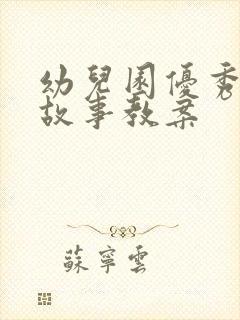 幼兒園優秀
故事教案
蘇寧雲